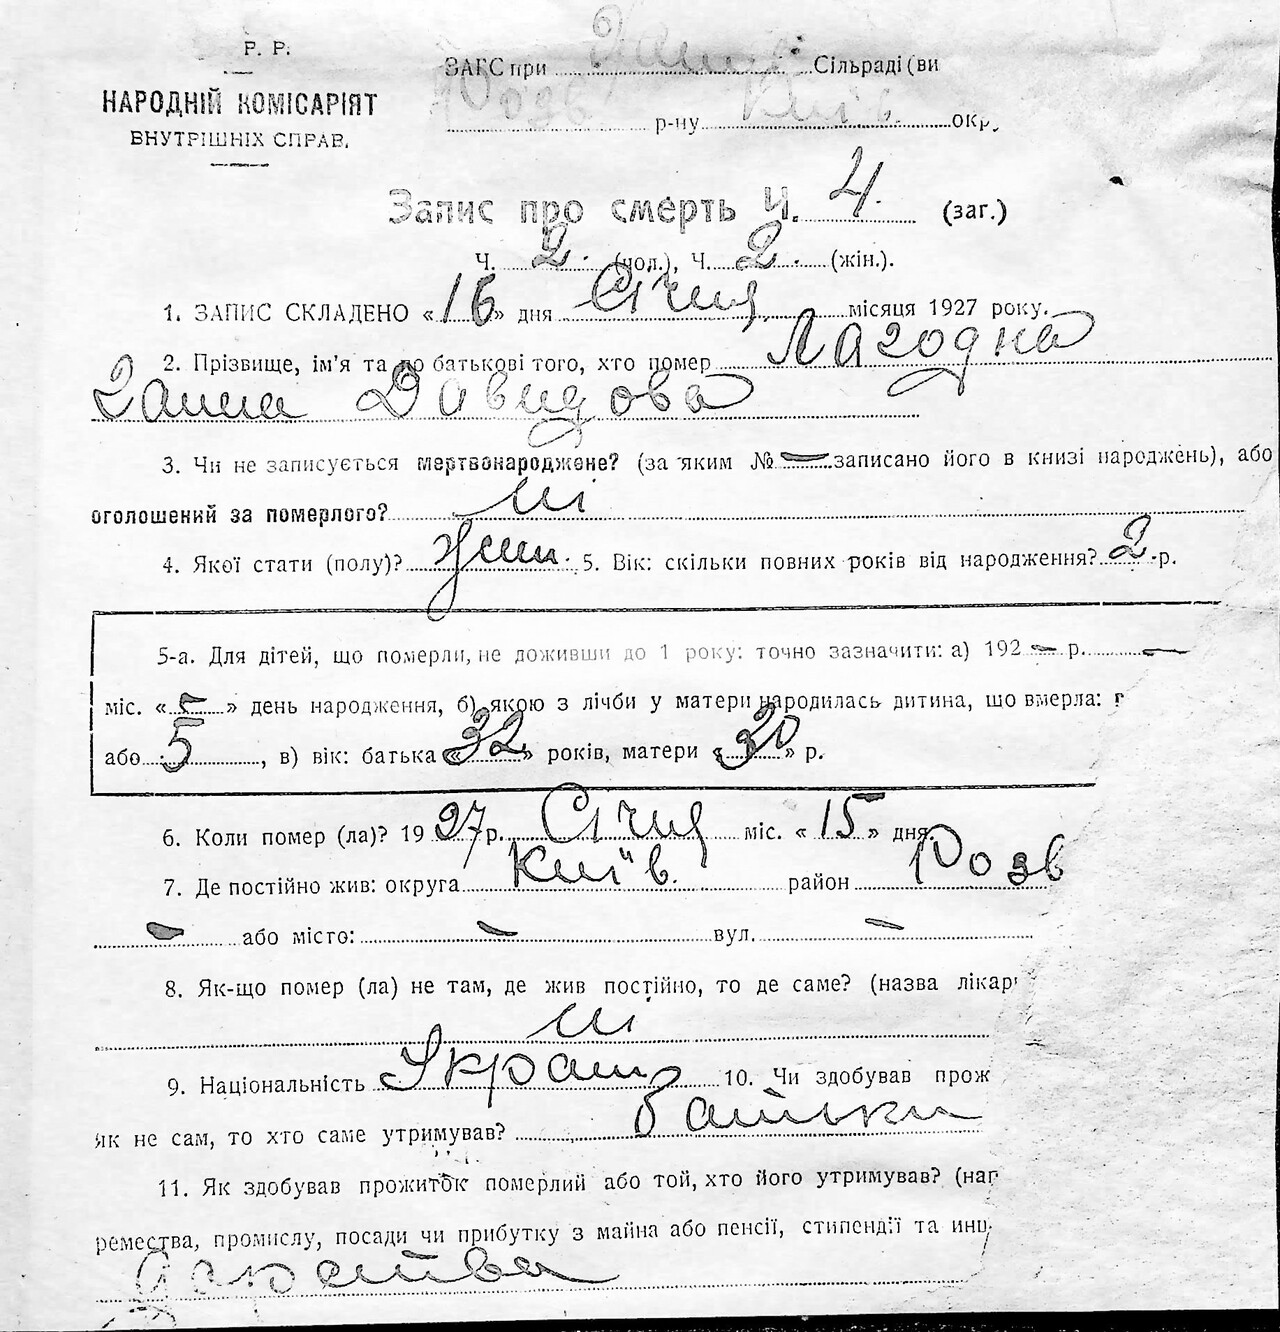 Р. Р.
НАРОДНІЙ КОМІСАРІЯТ
ВНУТРІШНІХ СПРАВ.
ЗАГС при Сільраді (ви
Розв р-ну Київ. окр.
Запис про смерть Ч. 4. (заг.)
Ч. 2. (чол.), Ч. 2. (жін.).
1. ЗАПИС СКЛАДЕНО «16» дня Січня місяця 1927 року.
2. Прізвище, ім'я та по батькові того, хто помер Лагодна
Ганна Давидова
3. Чи не записується мертвонароджене? (за яким № — записано його в книзі народжень), або
оголошений за померлого? ні
4. Якої стати (полу)? жін. 5. Вік: скільки повних років від народження? 2 р.
5-а. Для дітей, що померли, не доживши до 1 року: точно зазначити: а) 192 — р. —
міс. « » день народження, б) якою з лічби у матери народилась дитина, що вмерла:
або 5, в) вік: батька «32» років, матери «30» р.
6. Коли помер (ла)? 1927 р. Січня міс. «15» дня.
7. Де постійно жив: округа Київ. район Розв
— або місто: — вул. —
8. Як-що помер (ла) не там, де жив постійно, то де саме? (назва лікар
ні
9. Національність Україн 10. Чи здобував прож
як не сам, то хто саме утримував? батьки
11. Як здобував прожиток померлий або той, хто його утримував? (наг
ремества, промислу, посади чи прибутку з майна або пенсії, стипендії та инш.